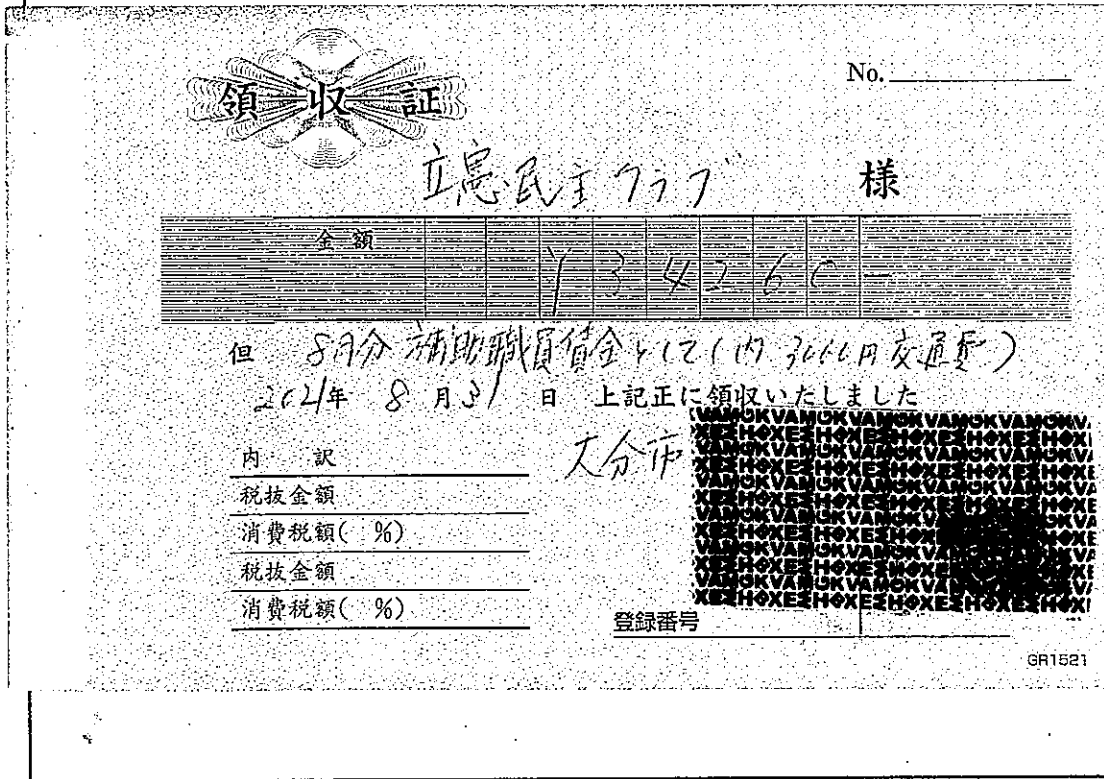 No.
領収証
立憲民主クラブ 様
金額 ¥34260-
但 8月分 補助職員賃金として(内3000円交通費)
2021年 8月31日 上記正に領収いたしました
大分市
内 訳
税抜金額
消費税額( %)
税抜金額
消費税額( %)
登録番号
GR1521